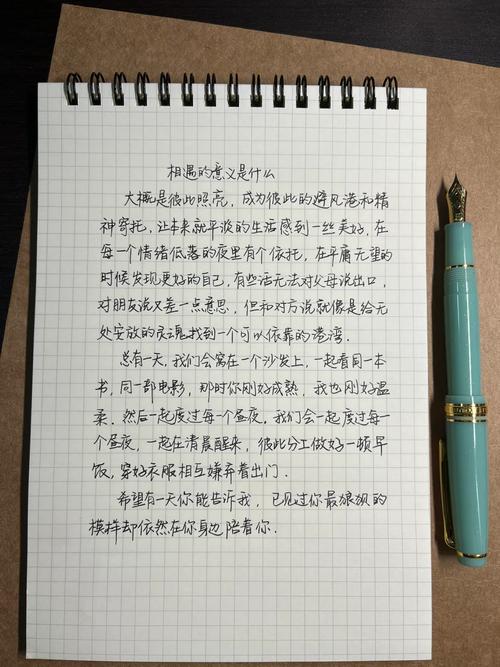 相遇的意义是什么
大概是彼此照亮，成为彼此的避风港和精
神寄托，让本来就平淡的生活感到一丝美好，在
每一个情绪低落的夜里有个依托，在平庸无望的
时候发现更好的自己，有些话无法对父母说出口，
对朋友说又差一点意思，但和对方说就像是给无
处安放的灵魂找到一个可以依靠的港湾．
总有一天，我们会窝在一个沙发上，一起看同一本
书，同一部电影，那时你刚好成熟，我也刚好温
柔．然后一起度过每一个昼夜．我们会一起度过每一
个昼夜，一起在清晨醒来，彼此分工做好一顿早
饭，穿好衣服相互嫌弃着出门．
希望有一天你能告诉我，已见过你最狼狈的
模样却依然在你身边陪着你．